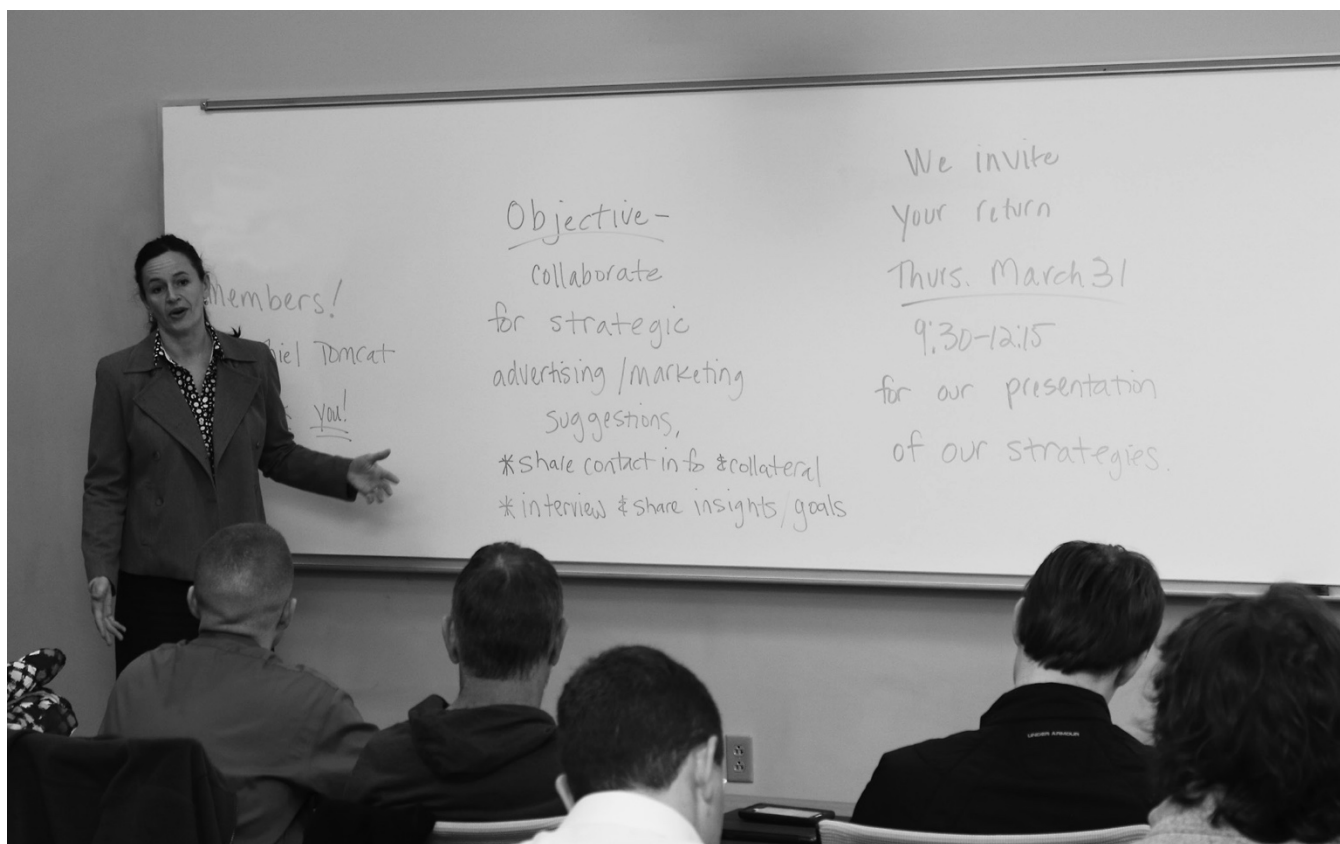 Members!
Tomcat
you!
Objective-
collaborate
for strategic
advertising/marketing
suggestions,
*share contact info &collateral
*interview &share insights/goals
We invite
your return
Thurs. March 31
9:30-12:15
for our presentation
of our strategies.
UNDER ARMOUR